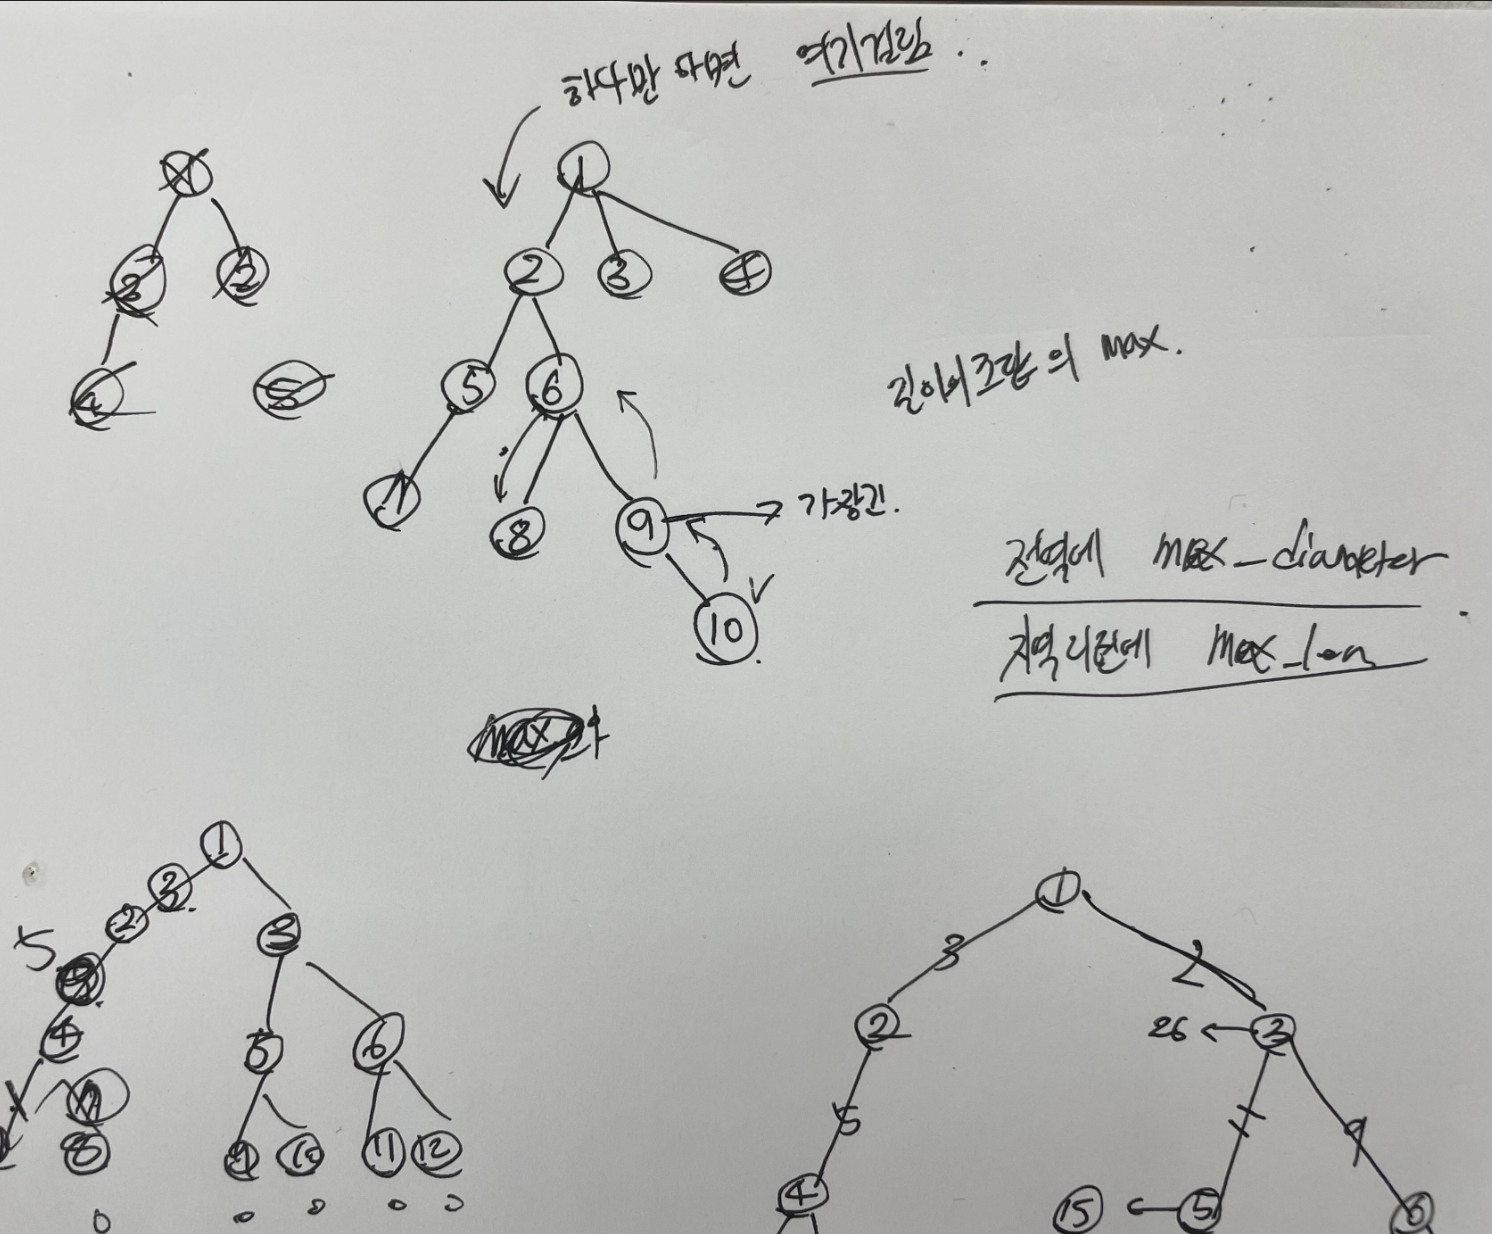 하다만 하면 여기걸림..
1
2 3 4
5 6
7
8
9 → 가장긴.
10
길이의 조합의 max.
전역에 max_diameter
지역리턴에 max_len
1
3
2
3
5
4
5 6
8
9 10 11 12
1
3 2
2
26 ← 3
5 1 9
4
15 ← 5
6